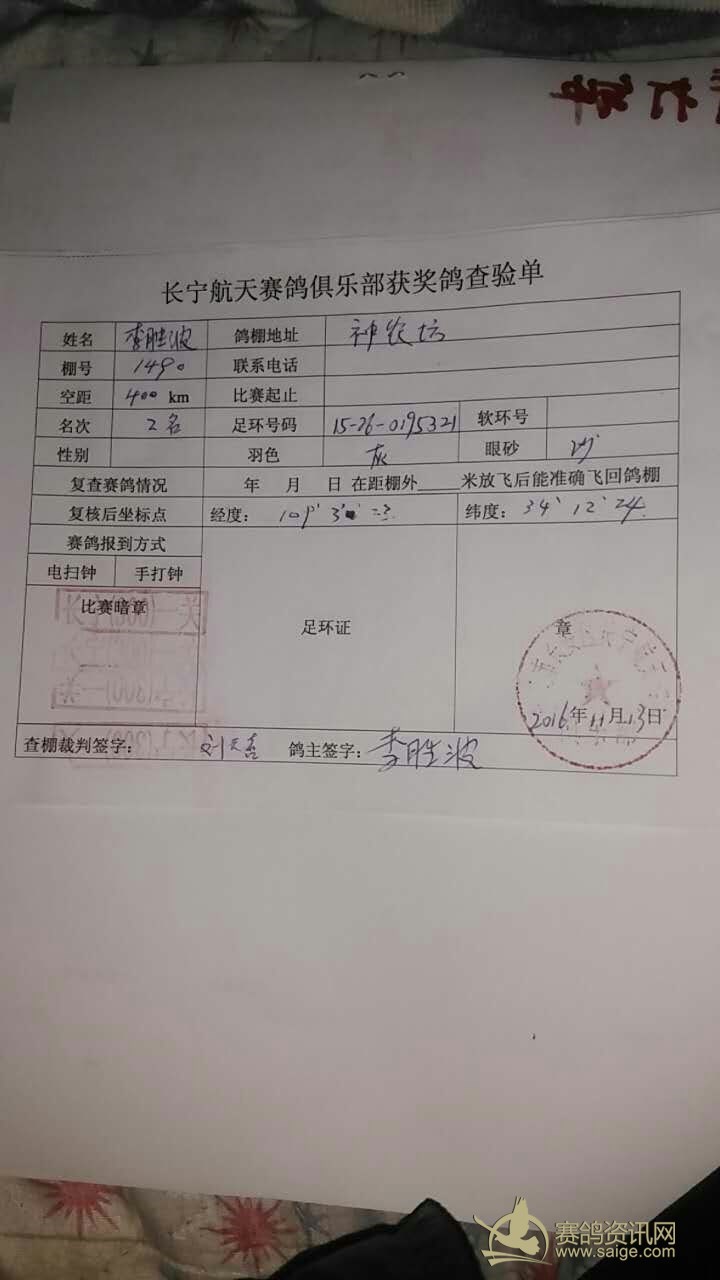 长宁航天赛鸽俱乐部获奖鸽查验单
姓名 李胜波 鸽棚地址 神农坊
棚号 1490 联系电话
空距 400 km 比赛起止
名次 2名 足环号码 15-26-0195321 软环号
性别 羽色 灰 眼砂 砂
复查赛鸽情况 年 月 日 在距棚外____米放飞后能准确飞回鸽棚
复核后坐标点 经度: 109° 纬度: 34° 12' 24
赛鸽报到方式
电扫钟 手打钟
比赛暗章 足环证 章
2016年11月13日
查棚裁判签字: 刘天喜 鸽主签字: 李胜波
赛鸽资讯网
www.saige.com